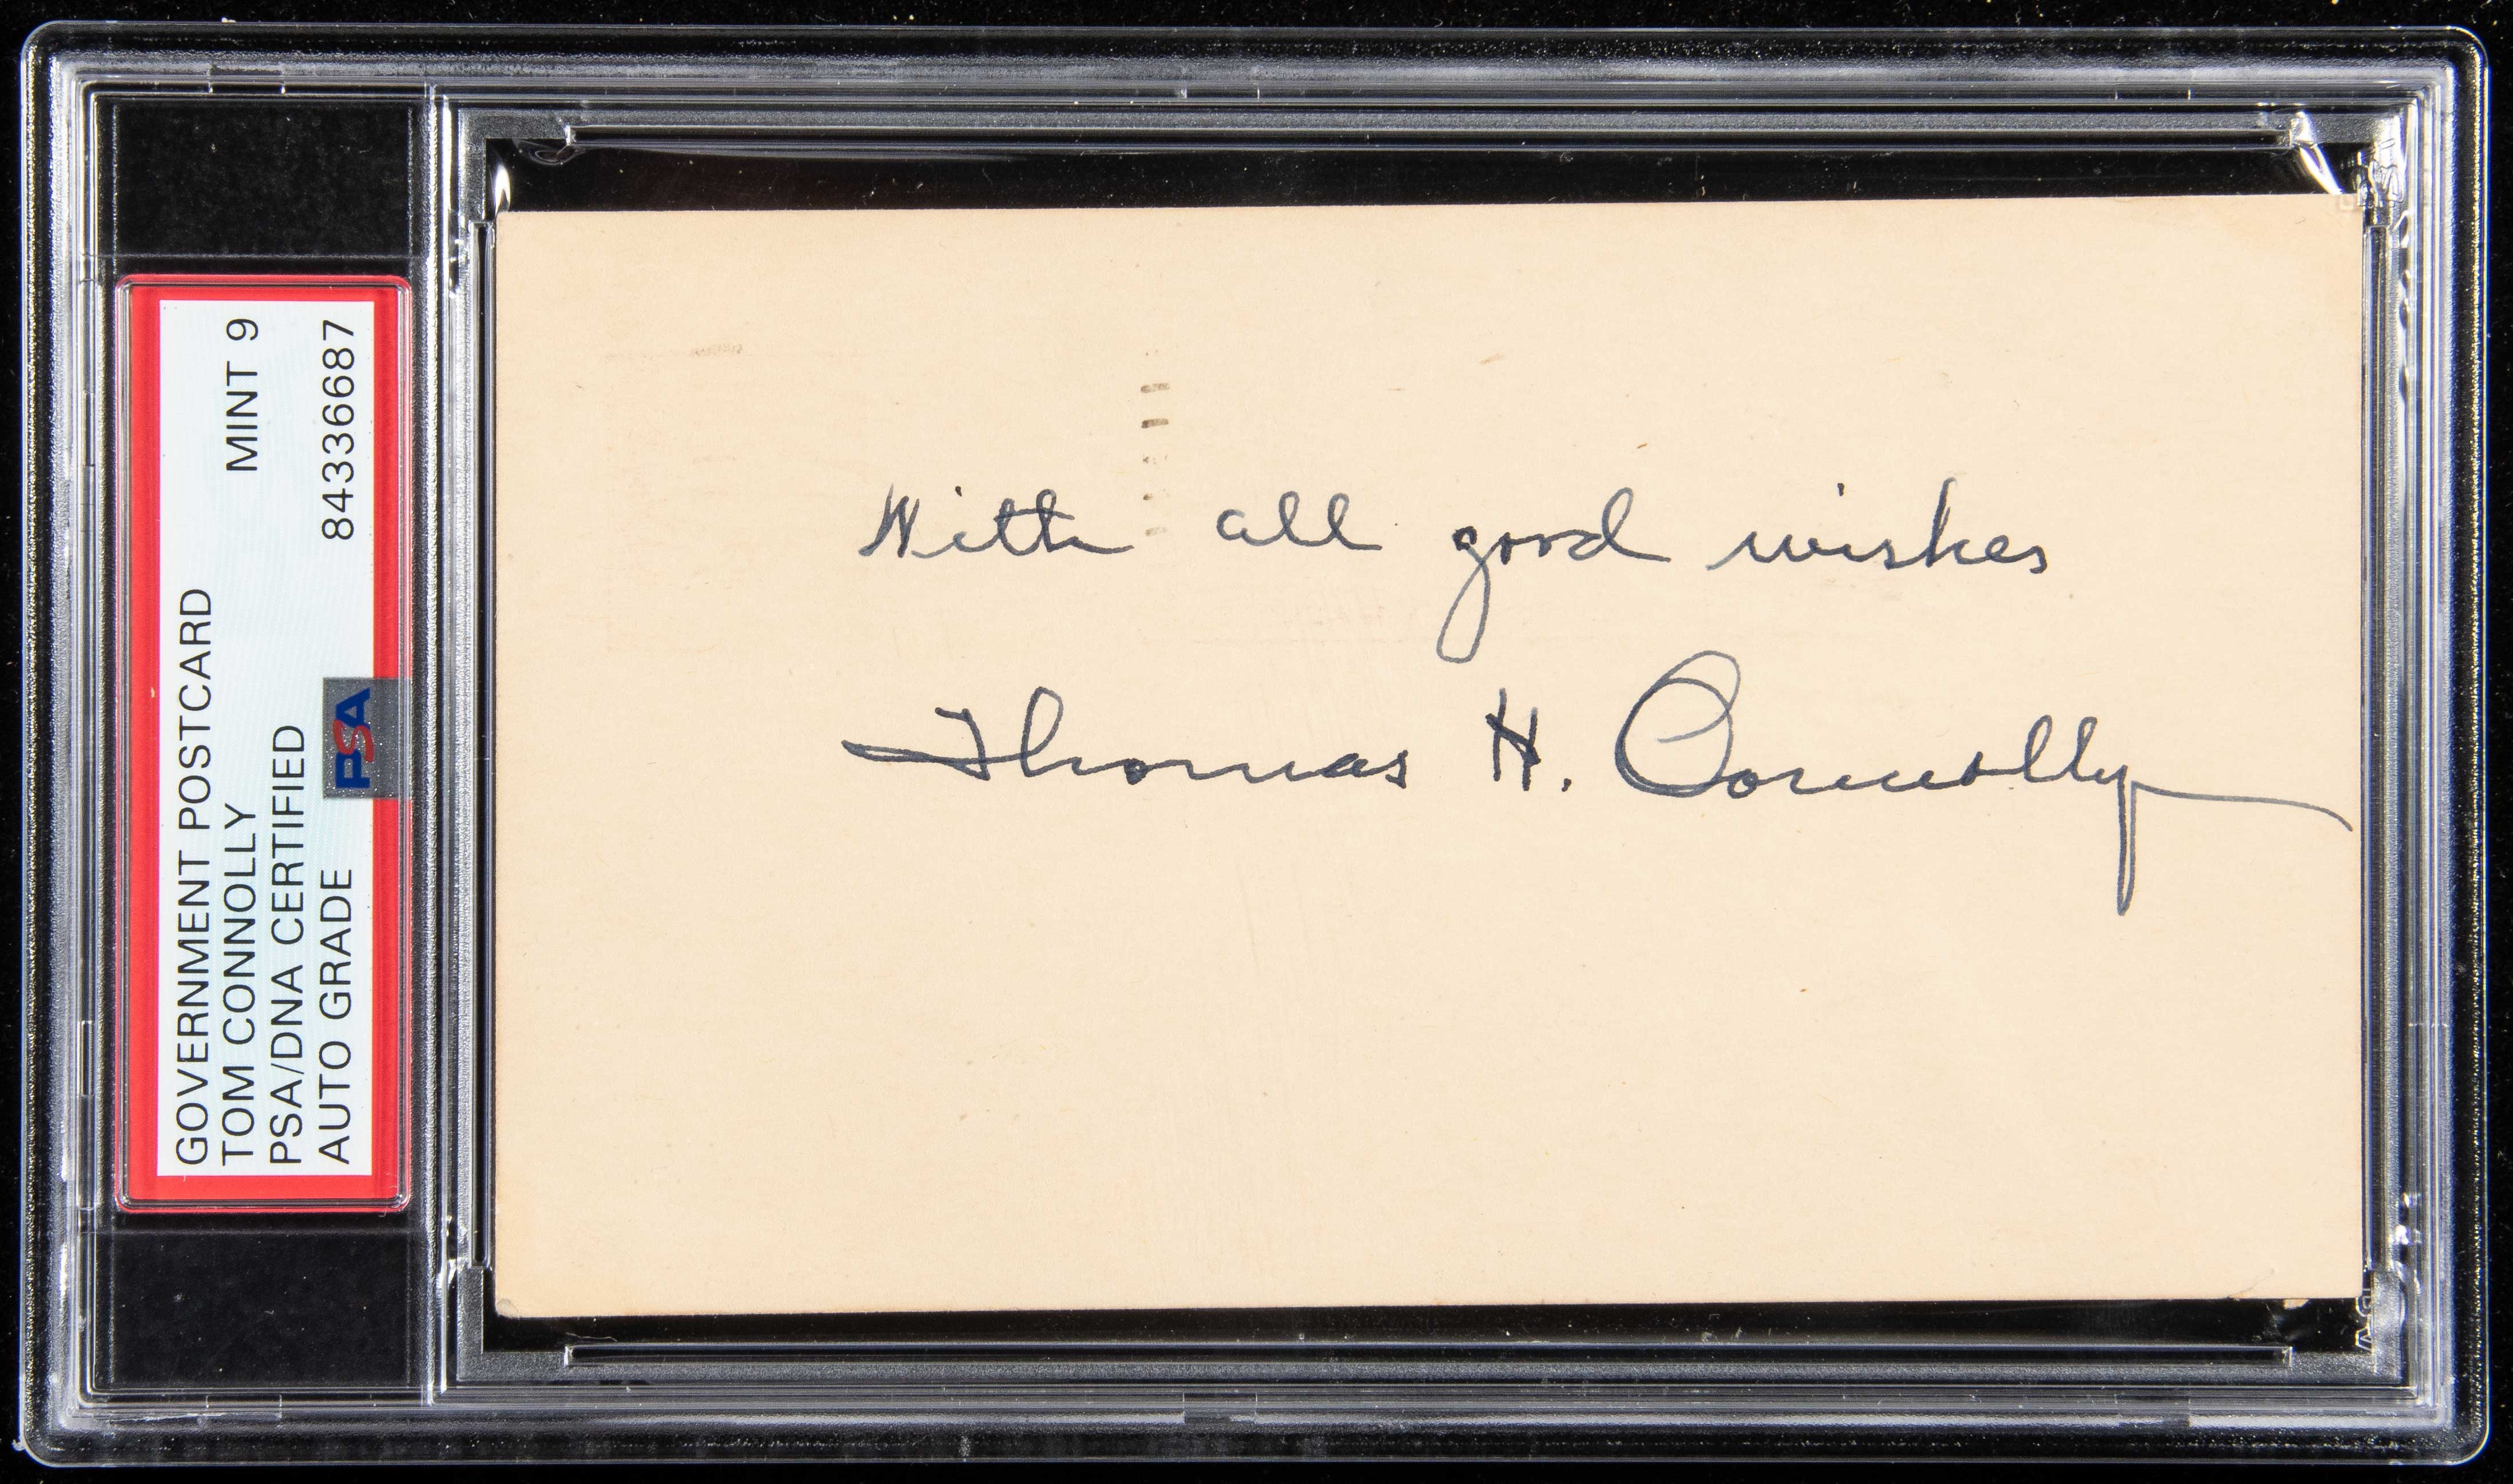 GOVERNMENT POSTCARD
TOM CONNOLLY MINT 9
PSA/DNA CERTIFIED
AUTO GRADE 84336687
PSA
With all good wishes
Thomas H. Connolly